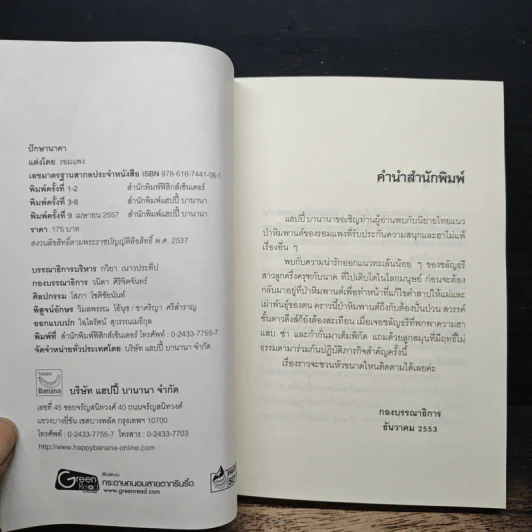 ปักษานาคา
แต่งโดย รอมแพง
เลขมาตรฐานสากลประจำหนังสือ ISBN 978-616-7441-06-1
พิมพ์ครั้งที่ 1-2 สำนักพิมพ์ฟิสิกส์เซ็นเตอร์
พิมพ์ครั้งที่ 3-8 สำนักพิมพ์แฮปปี้ บานานา
พิมพ์ครั้งที่ 9 เมษายน 2557 สำนักพิมพ์แฮปปี้ บานานา
ราคา 175 บาท
สงวนลิขสิทธิ์ตามพระราชบัญญัติลิขสิทธิ์ พ.ศ. 2537
บรรณาธิการบริหาร กวิยา เนาวประทีป
กองบรรณาธิการ วนิดา ศิริจิตจันทร์
ศิลปกรรม โสภา โชติชัยนันท์
พิสูจน์อักษร วิมลพรรณ ไข้นุช / ชาคริญา ศรีสำราญ
ออกแบบปก ไขไลรัตน์ สุวรรณเมธีกุล
พิมพ์ที่ สำนักพิมพ์ฟิสิกส์เซ็นเตอร์ โทรศัพท์ : 0-2433-7755-7
จัดจำหน่ายทั่วประเทศโดย บริษัท แฮปปี้ บานานา จำกัด
happy
Banana
บริษัท แฮปปี้ บานานา จำกัด
เลขที่ 45 ซอยจรัญสนิทวงศ์ 40 ถนนจรัญสนิทวงศ์
แขวงบางยี่ขัน เขตบางพลัด กรุงเทพฯ 10700
โทรศัพท์ : 0-2433-7755-7 โทรสาร : 0-2433-7703
http://www.happybanana-online.com
Green
Read
พิมพ์บน
กระดาษถนอมสายตากรีนรี้ด
www.greenread.com
คำนำสำนักพิมพ์
แฮปปี้ บานานาขอเชิญท่านผู้อ่านพบกับนิยายไทยแนว
ป่าหิมพานต์ของรอมแพงที่รับประกันความสนุกและฮาไม่แพ้
เรื่องอื่น ๆ
พบกับความน่ารักออกแนวทะเล้นน้อย ๆ ของชลัญธรี
สาวลูกครึ่งครุฑกับนาค ที่ไปเติบโตในโลกมนุษย์ ก่อนจะต้อง
กลับมาอยู่ที่ป่าหิมพานต์เพื่อทำหน้าที่แก้ไขคำสาปให้แม่และ
เผ่าพันธุ์ของตน คราวนี้ป่าหิมพานต์ถึงกับต้องปั่นป่วน สวรรค์
ชั้นดาวดึงส์ก็ยังต้องสะเทือน เมื่อเจอชลัญธรีที่พกพาความฮา
แสบ ซ่า และก๋ากั่นมาเต็มพิกัด แถมด้วยลูกสมุนที่มีฤทธิ์ไม่
ธรรมดามาร่วมกันปฏิบัติภารกิจสำคัญครั้งนี้
เรื่องราวจะชวนหัวขนาดไหนติดตามได้เลยค่ะ
กองบรรณาธิการ
ธันวาคม 2553